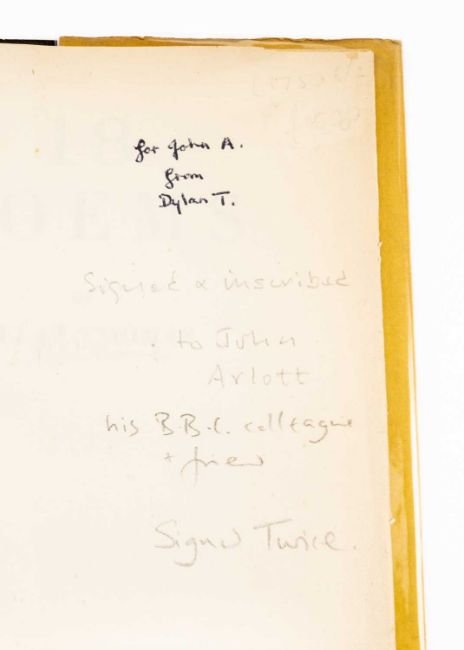 for John A.
from
Dylan T.
Signed & inscribed
to John
Arlott
his B.B.C. colleague
+ friend
Signed Twice.